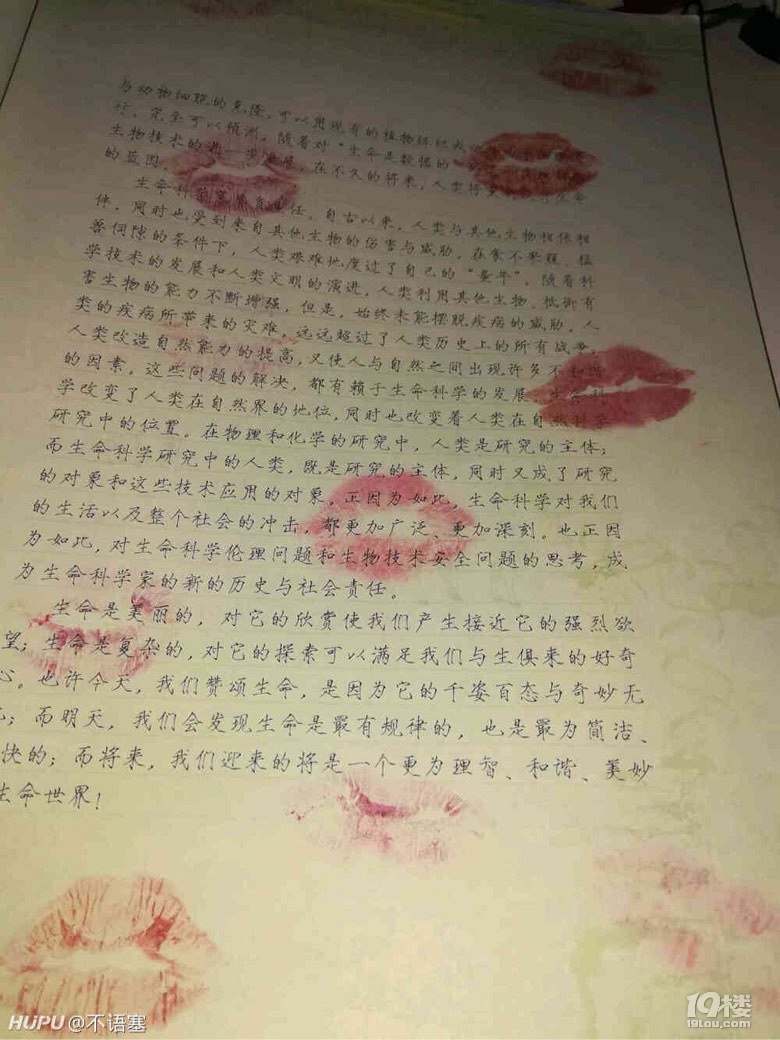 与动物细胞的克隆,可以用现有的植物组织或
完全可以预测。随着对“生命是数据的
生物技术的进一步发展,在不久的将来,人类将
的蓝图。
生命科学家肩负重任。自古以来,人类与其他生物相依相
伴,同时也受到来自其他生物的伤害与威胁,在食不果腹、猛
兽伺隙的条件下,人类艰难地度过了自己的“童年”。随着科
学技术的发展和人类文明的演进,人类利用其他生物、抵御有
害生物的能力不断增强,但是,始终未能摆脱疾病的威胁。人
类的疾病所带来的灾难,远远超过了人类历史上的所有战争。
人类改造自然能力的提高,又使人与自然之间出现许多不和谐
的因素。这些问题的解决,都有赖于生命科学的发展。生命科
学改变了人类在自然界的地位,同时也改变着人类在自然科学
研究中的位置。在物理和化学的研究中,人类是研究的主体;
而生命科学研究中的人类,既是研究的主体,同时又成了研究
的对象和这些技术应用的对象。正因为如此,生命科学对我们
的生活以及整个社会的冲击,都更加广泛、更加深刻。也正因
为如此,对生命科学伦理问题和生物技术安全问题的思考,成
为生命科学家的新的历史与社会责任。
生命是美丽的,对它的欣赏使我们产生接近它的强烈欲
望;生命是复杂的,对它的探索可以满足我们与生俱来的好奇
心。也许今天,我们赞颂生命,是因为它的千姿百态与奇妙无
;而明天,我们会发现生命是最有规律的,也是最为简洁、
快的;而将来,我们迎来的将是一个更为理智、和谐、美妙
生命世界!
HUPU @不语塞
19楼
19lou.com